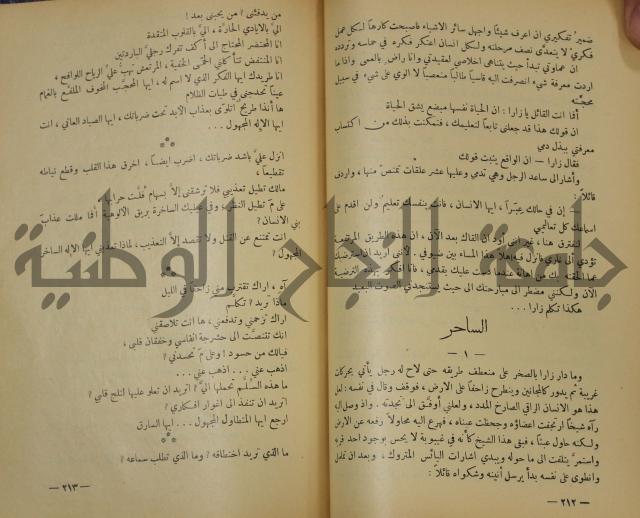 ضمير تفكيري ان اعرف شيئاً واجهل سائر الاشياء فاصبحت كارهاً لكل عمل
فكريّ لا يتعدى نصف مرحلته ولكل انسان اعتكر فكره في حماسه وتردده
ان عمايتي تبدأ حيث يتناهى اخلاصي لعقيدتي وانا راضٍ بالعمى واذا ما
اردت معرفة شيء انصرفت اليه قاسياً طالباً متعصباً لا الوي على شيء في سبيل
محجته
أفما انت القائل يا زارا : ان الحياة نفسها مبضع يشق الحياة
ان قولك هذا قد جعلني تابعاً لتعليمك ، فتمكنت بذلك من اكتساب
معرفتي ببذل دمي
فقال زارا — ان الواقع يثبت قولك
وأشار الى ساعد الرجل وهي تدمي وعليها عشر علقات تمتص منها ، واردف
قائلاً :
— إن في حالك عِبَراً ، ايها الانسان ، فانك بنفسك تعليم ولن اقدم على
اسماعك كل تعاليمي
لنفترق هنا ، غير انني اود ان القاك بعد الآن ، ان هذه الطريق المرتفعة
تؤدي الى غاري فانزل فيه اهلا هذا المساء بين ضيوفي ، لأنني اريد ان استرضيك
عما الحقته بك من اهانة عندما دست عليك بقدمي ، فأنا افكر بهذه الترضية
الآن ولكنني مضطر الى مبارحتك الى حيث يستنجدني الصوت البعيد
هكذا تكلم زارا ...
الساحر
— ١ —
وما دار زارا بالصخر على منعطف طريقه حتى لاح له رجل يأتي بحركات
غريبة ثم يدور كالمجانين وينطرح زاحفاً على الارض ، فوقف وقال في نفسه : لعل
هذا هو الانسان الراقي الصارخ الممدد ، ولعلني أوفق الى نجدته . واذ وصل اليه
رآه شيخاً ارتجفت اعضاؤه وجحظت عيناه ، فهرع اليه محاولاً رفعه عن الارض
ولكنه حاول عبثاً ، فبقي هذا الشيخ كأنه في غيبوبة لا يحس بوجود احد قربه
واستمر يتلفت الى ما حوله ويبدي اشارات البائس المتروك ، وبعد ان تململ
وانطوى على نفسه بدأ يرسل أنينه وشكواه قائلاً :
— ٢١٢ —
من يدفئني ? من يحبني بعد !
اليّ بالايادي الحارّة ، اليّ بالقلوب المتقدة
انا المحتضر المحتاج الى أكف تفرك رجليَّ الباردتين
انا المنتفض تتآكلني الحمّى الخفية ، والمرتعش تهبُّ عليَّ الارياح اللوافح ،
انا طريدك ايها الفكر الذي لا اسم له ، ايها المحجّب المخوف الملفع بالغمام
عيناً تحدجني في طيات الظلام
ها أنذا طريح أتلوّى بعذاب الابد تحت ضرباتك ، ايها الصياد العاتي ، انت
ايها الإله المجهول ...
انزل عليَّ بأشد ضرباتك ، اضرب ايضاً ، اخرق هذا القلب وقطع نياطه
تقطيعاً ،
مالك تطيل تعذيبي فلا ترشقني إلاَّ بسهام فُلّت حرابها
على مَ تطيل النظر ؟ وفي عينيك الساخرة بريق الالوهية أفما مللت عذاب
بني الانسان ?
انت تمتنع عن القتل ولا تقصد إلاَّ التعذيب ، لماذا تعذبني ايها الإله الساخر
المجهول ?
آه ، اراك تقترب مني زاحفاً في الليل
ماذا تريد ؟ تكلَّم
اراك تزحمني وتدفعني ، ها انت تلاصقني
انك تتنصت الى حشرجة انفاسي وخفقان قلبي ،
فيالك من حسود ! وعلى مَ تحسدني ?
اذهب عني ... اذهب عني ...
ما هذه السلَّم تحملها اليَّ ? اتريد ان تعلو عليها لتلج قلبي ?
اتريد ان تنفذ الى اغوار افكاري ?
ارجع ايها المتطاول المجهول ... ايها السارق
ما الذي تريد اختطافه ? وما الذي تطلب سماعه ?
— ٢١٣ —
جامعة النجاح الوطنية